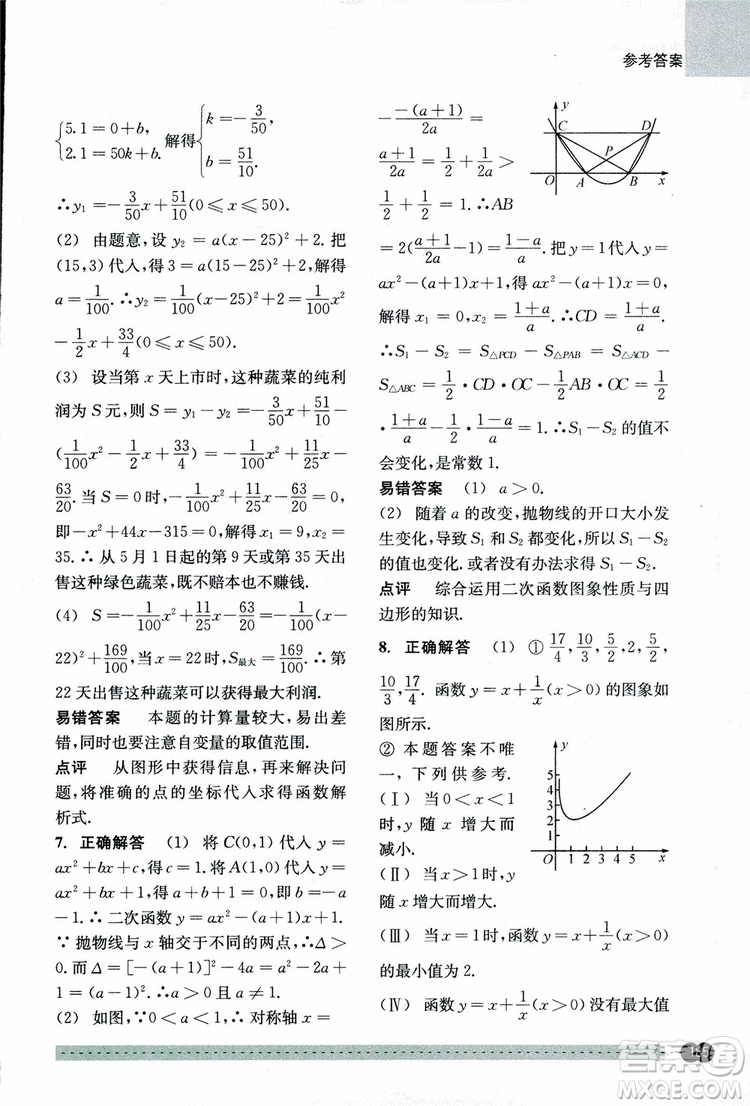 参考答案
{5.1=0+b, 2.1=50k+b. 解得{k=-3/50, b=51/10.
∴y₁=-3/50x+51/10(0≤x≤50).
(2) 由题意,设 y₂=a(x-25)²+2. 把
(15,3)代入,得 3=a(15-25)²+2,解得
a=1/100.∴y₂=1/100(x-25)²+2=1/100x²
-1/2x+33/4(0≤x≤50).
(3) 设当第 x 天上市时,这种蔬菜的纯利
润为 S 元,则 S=y₁-y₂=-3/50x+51/10-
(1/100x²-1/2x+33/4)=-1/100x²+11/25x-
63/20.当 S=0 时,-1/100x²+11/25x-63/20=0,
即-x²+44x-315=0,解得 x₁=9,x₂=
35.∴从 5 月 1 日起的第 9 天或第 35 天出
售这种绿色蔬菜,既不赔本也不赚钱.
(4) S=-1/100x²+11/25x-63/20=-1/100(x-
22)²+169/100,当 x=22 时,S最大=169/100.∴第
22 天出售这种蔬菜可以获得最大利润.
易错答案 本题的计算量较大,易出差
错,同时也要注意自变量的取值范围.
点评 从图形中获得信息,再来解决问
题,将准确的点的坐标代入求得函数解
析式.
7. 正确解答 (1) 将 C(0,1)代入 y=
ax²+bx+c,得 c=1.将 A(1,0)代入 y=
ax²+bx+1,得 a+b+1=0,即 b=-a
-1.∴二次函数 y=ax²-(a+1)x+1.
∵抛物线与 x 轴交于不同的两点,∴Δ>
0.而 Δ=[-(a+1)]²-4a=a²-2a+
1=(a-1)²>0,∴a≠1.
(2) 如图,∵0<a<1,∴对称轴 x=
-(-(a+1))/2a=
(a+1)/2a=1/2+1/2a>
1/2+1/2=1.∴AB
=2((a+1)/2a-1)=(1-a)/a.把 y=1 代入 y=
ax²-(a+1)x+1,得 ax²-(a+1)x=0,
解得 x₁=0,x₂=(1+a)/a.∴CD=(1+a)/a.
∴S₁-S₂=S△PCD-S△PAB=S△ACD-
S△ABC=1/2·CD·OC-1/2AB·OC=1/2
·(1+a)/a-1/2·(1-a)/a=1.∴S₁-S₂ 的值不
会变化,是常数 1.
易错答案 (1) a>0.
(2) 随着 a 的改变,抛物线的开口大小发
生变化,导致 S₁ 和 S₂ 都变化,所以 S₁-S₂
的值也变化.或者没有办法求得 S₁-S₂.
点评 综合运用二次函数图象性质与四
边形的知识.
8. 正确解答 (1) ①17/4,10/3,5/2,2,5/2,
10/3,17/4.函数 y=x+1/x(x>0)的图象如
图所示.
② 本题答案不唯
一,下列供参考.
(Ⅰ) 当 0<x<1
时,y 随 x 增大而
减小.
(Ⅱ) 当 x>1 时,y
随 x 增大而增大.
(Ⅲ) 当 x=1 时,函数 y=x+1/x(x>0)
的最小值为 2.
(Ⅳ) 函数 y=x+1/x(x>0)没有最大值
y
C
D
P
O
A
B
x
y
5
4
3
2
1
O
1 2 3 4 5
x
答案圈
MXQE.COM